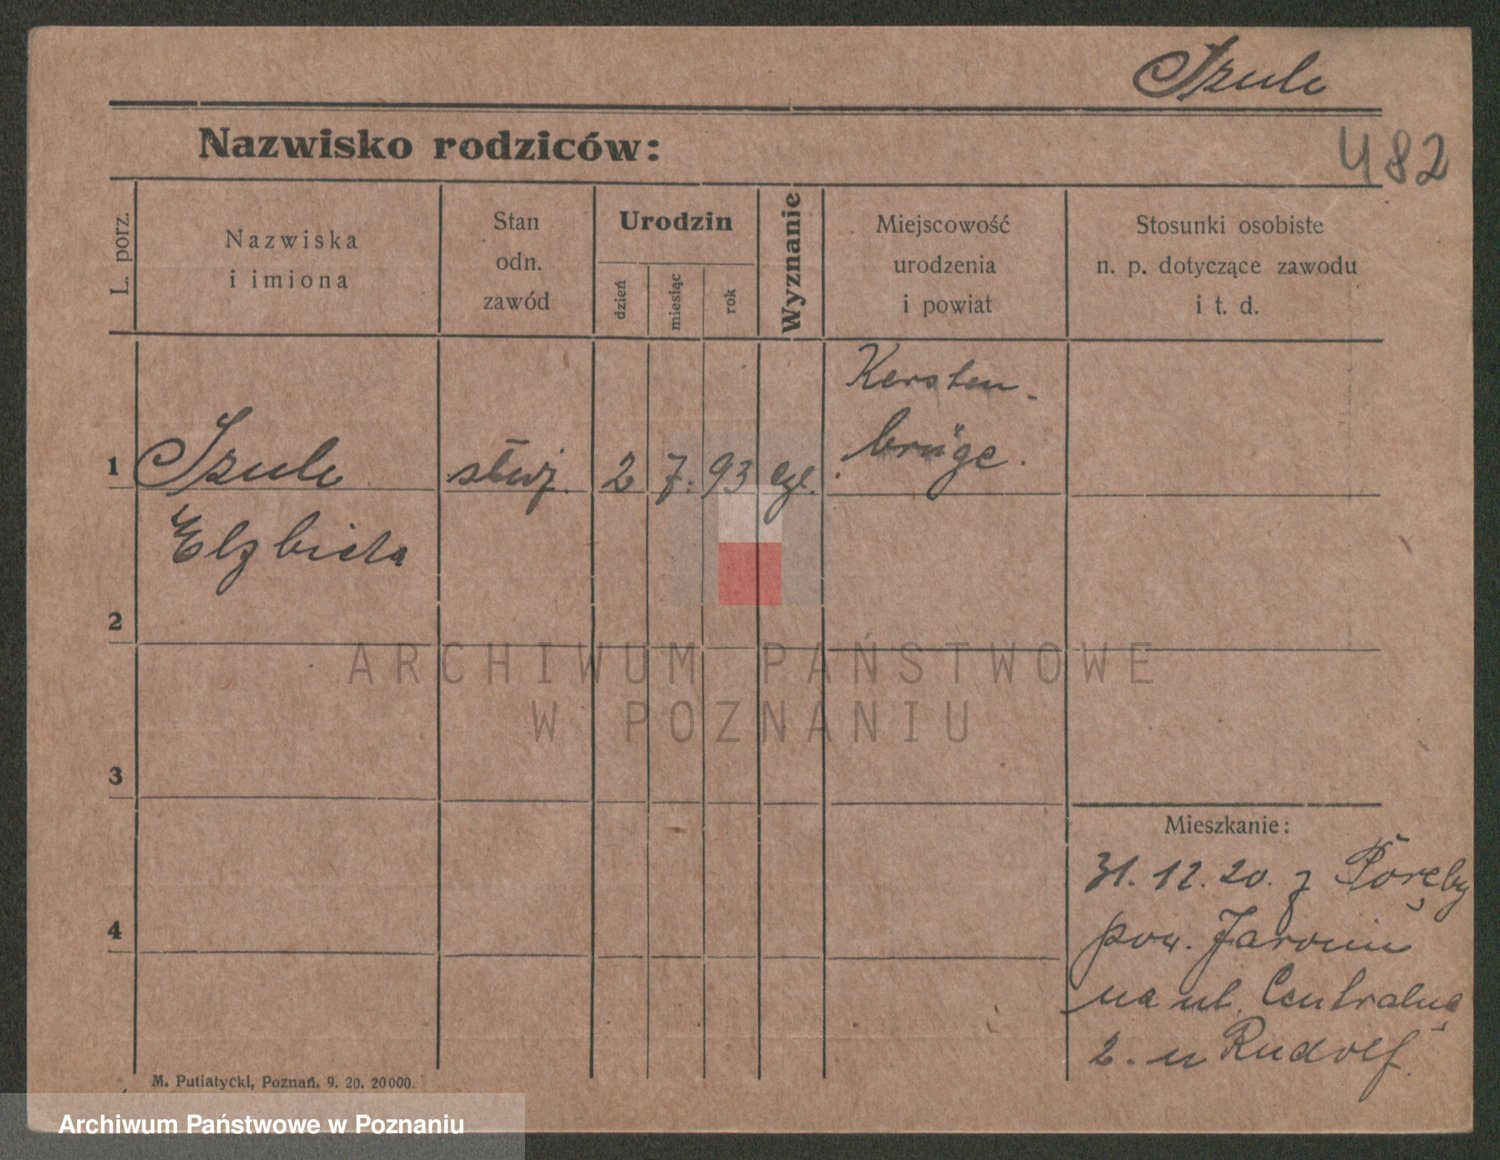 Szulc
Nazwisko rodziców:
482
L. porz.
Nazwiska
i imiona
Stan
odn.
zawód
Urodzin
dzień
miesiąc
rok
Wyznanie
Miejscowość
urodzenia
i powiat
Stosunki osobiste
n. p. dotyczące zawodu
i t. d.
Kersten-
1 Szulc służ. 2 7. 93 egl. brüge.
Elzbieta
2
ARCHIWUM PAŃSTWOWE
W POZNANIU
3
Mieszkanie:
31.12.20. z Poręby
4
pow. Jarocin
na ul. Centralną
2. u Rudolf.
M. Putiatycki, Poznań. 9. 20. 20000.
Archiwum Państwowe w Poznaniu